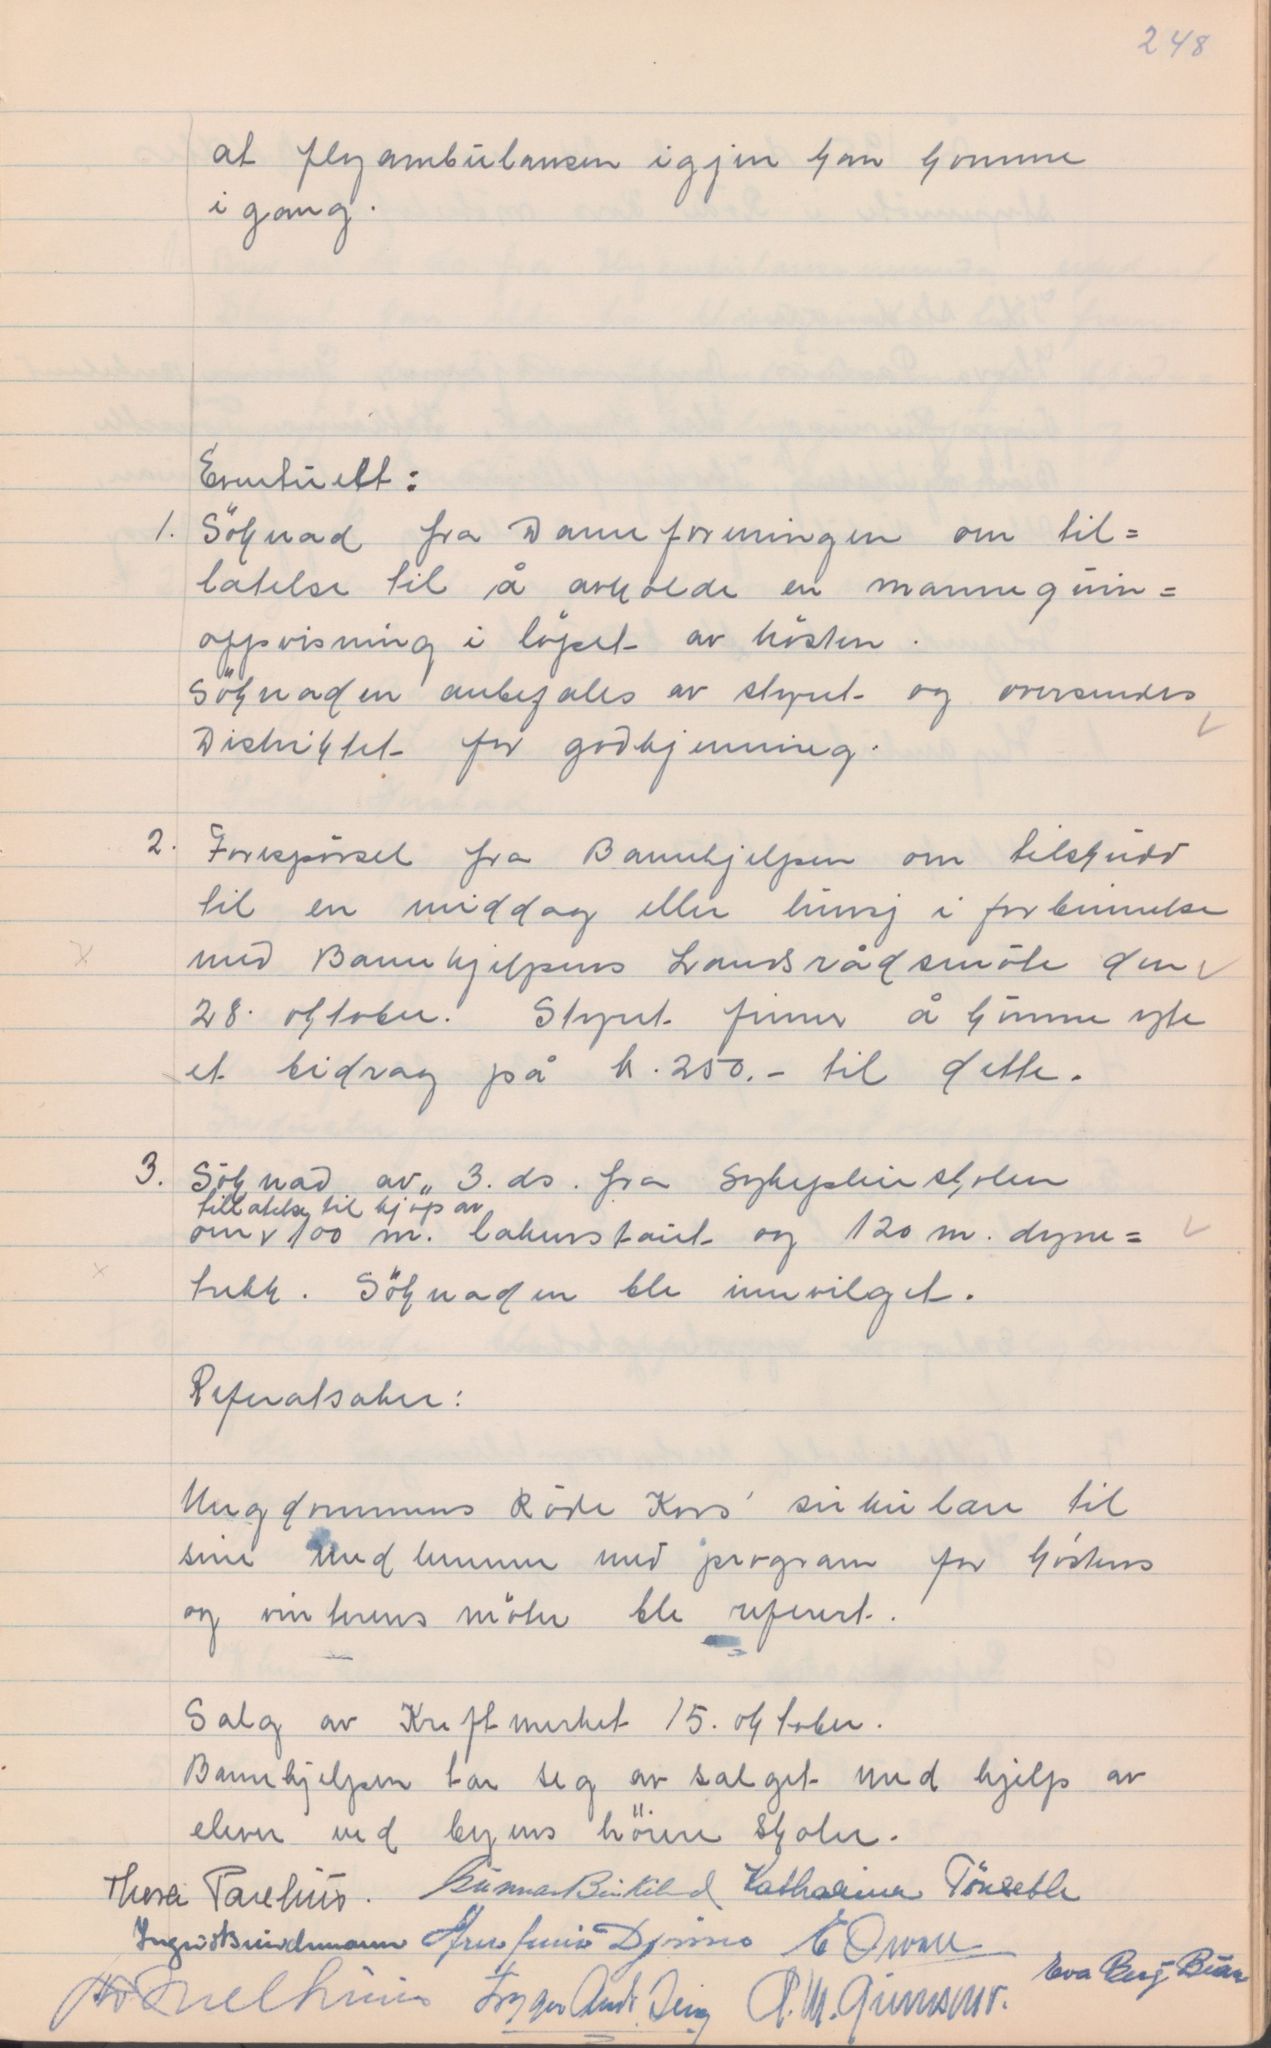 248
at flyambulansen igjen kan komme
i gang.
Eventuelt:
1. Söknad fra Dameforeningen om til=
latelse til å avholde en mannequin=
oppvisning i löpet av hösten.
Söknaden anbefales av styret og oversendes
Distriktet for godkjenning.
2. Forespörsel fra Barnehjelpen om tilskudd
til en middag eller lunsj i forbinnelse
med Barnehjelpens Landsrådsmöte den
28. oktober. Styret finner å kunne yte
et bidrag på kr. 250.- til dette.
3. Söknad av 3. ds. fra Sykepleierskolen
tillatelse til kjöp av
om 100 m. lakenstout og 120 m. dyne=
trekk. Söknaden ble innvilget.
Referatsaker:
Ungdommens Röde Kors' sirkulære til
sine medlemmer med program for höstens
og vinterens möter ble referert.
Salg av Kreftmerket 15. oktober.
Barnehjelpen tar seg av salget med hjelp av
elever ved byens höiere skoler.
Thora Parelius. Gunnar Birkeland Katharina Tönseth
Eva Berg